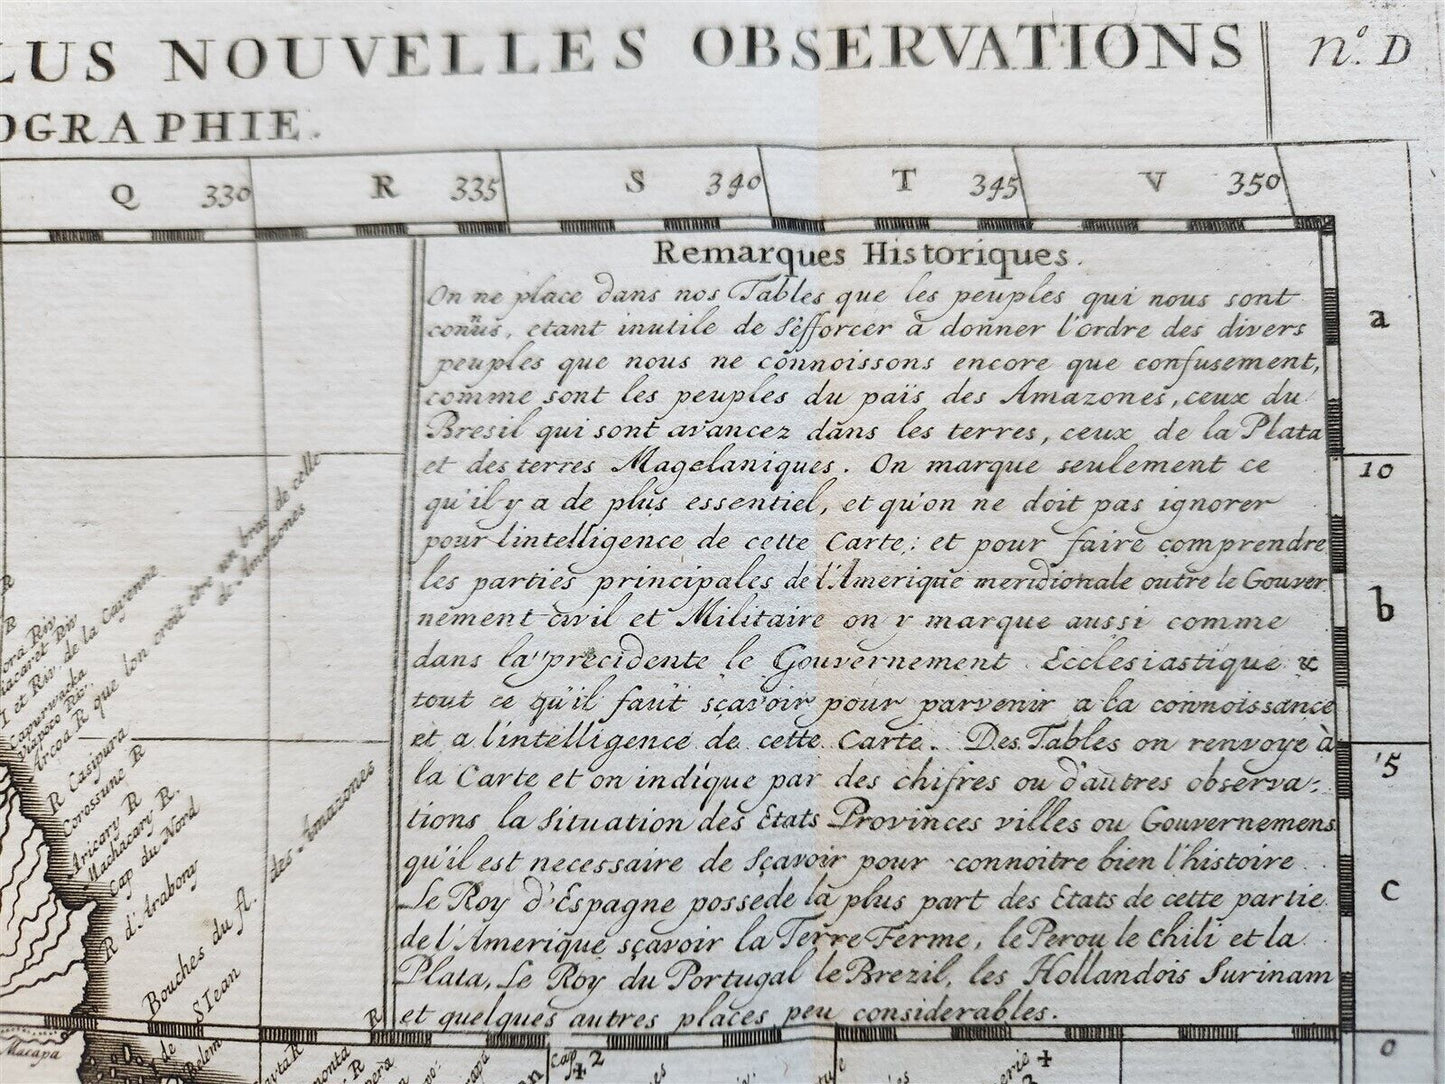 LUS NOUVELLES OBSERVATIONS
n.º D
OGRAPHIE.
Q 330 R 335 S 340 T 345 V 350
Remarques Historiques.
On ne place dans nos Tables que les peuples qui nous sont
connus, etant inutile de s'efforcer à donner l'ordre des divers
peuples que nous ne connoissons encore que confusement,
comme sont les peuples du païs des Amazones, ceux du
Bresil qui sont avancez dans les terres, ceux de la Plata
et des terres Magelaniques. On marque seulement ce
qu'il y a de plus essentiel, et qu'on ne doit pas ignorer
pour l'intelligence de cette Carte: et pour faire comprendre
les parties principales de l'Amerique meridionale outre le Gouver
nement civil et Militaire on y marque aussi comme
dans la precidente le Gouvernement Ecclesiastique &
tout ce qu'il faut sçavoir pour parvenir a la connoissance
et a l'intelligence de cette Carte. Des Tables on renvoye à
la Carte et on indique par des chifres ou d'autres observa-
tions la situation des Etats Provinces villes ou Gouvernemens
qu'il est necessaire de sçavoir pour connoitre bien l'histoire
Le Roy d'Espagne possede la plus part des Etats de cette partie
de l'Amerique sçavoir la Terre Ferme, le Perou le chili et la
Plata, Le Roy du Portugal le Brezil, les Hollandois Surinam
et quelques autres places peu considerables.
a
10
b
15
c
0
R
R
I et Riv. de la Cayenne
Arcoa R que lon croit être un bras de celle
de Amazones
R Casipura
Corossune R
Aricary R
Machacary R.
Cap du Nord
R d'Arabony
Bouches du fl. des Amazones
S Iean
R
Marapa
I de
Cap
42